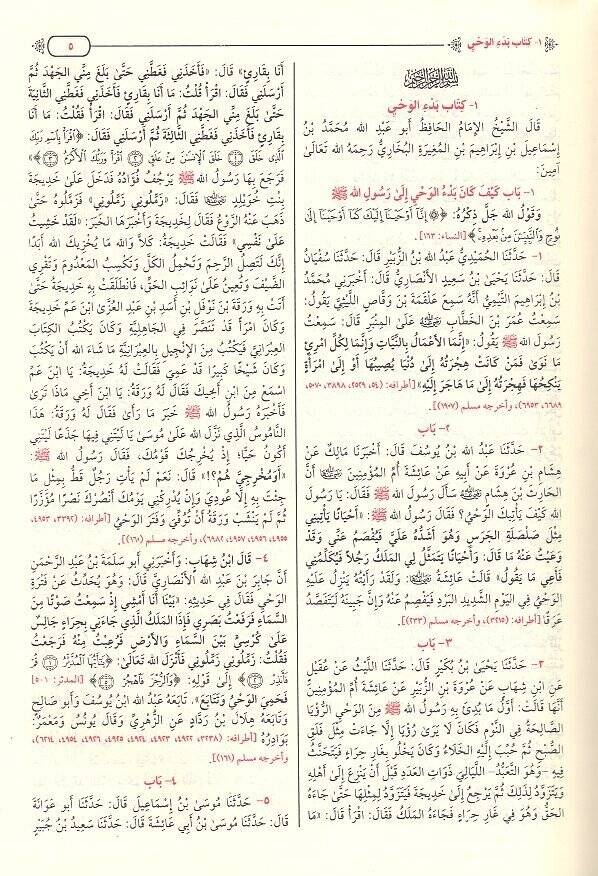 ١- كتاب بَدْءِ الوَحْي
٥
بِسْمِ اللَّهِ الرَّحْمَنِ الرَّحِيمِ
١- كتاب بَدْءِ الوَحْي
قَالَ الشَّيْخُ الإِمَامُ الحَافِظُ أَبو عَبدِ الله مُحَمَّدُ بْنُ
إِسْمَاعِيلَ بْنِ إِبْرَاهِيمَ بْنِ المُغِيرَةِ البُخَارِيُّ رَحِمَهُ الله تَعَالَى
آمِينَ:
١- باب كَيْفَ كَانَ بَدْءُ الوَحْيِ إِلَى رَسُولِ اللهِ ﷺ
وَقَوْلُ الله جَلَّ ذِكْرُهُ: ﴿إِنَّا أَوْحَيْنَا إِلَيْكَ كَمَا أَوْحَيْنَا إِلَى
نُوحٍ وَالنَّبِيِّينَ مِنْ بَعْدِهِ﴾ [النساء: ١٦٣].
١- حَدَّثَنَا الحُمَيْدِيُّ عَبْدُ الله بْنُ الزُّبَيْرِ قَالَ: حَدَّثَنَا سُفْيَانُ
قَالَ: حَدَّثَنَا يَحْيَىٰ بْنُ سَعِيدٍ الأَنْصَارِيُّ قَالَ: أَخْبَرَنِي مُحَمَّدُ
بْنُ إِبرَاهِيمَ التَّيْمِيُّ أَنَّهُ سَمِعَ عَلْقَمَةَ بْنَ وَقَّاصٍ اللَّيْثِيَّ يَقُولُ:
سَمِعْتُ عُمَرَ بْنَ الخَطَّابِ رضي الله عنه عَلَى المِنْبَرِ قَالَ: سَمِعْتُ
رَسُولَ الله ﷺ يَقُولُ: «إِنَّمَا الأَعْمَالُ بِالنِّيَّاتِ وَإِنَّمَا لِكُلِّ امْرِئٍ
مَا نَوَى فَمَنْ كَانَتْ هِجْرَتُهُ إِلَى دُنْيَا يُصِيبُهَا أَوْ إِلَى امْرَأَةٍ
يَنْكِحُهَا فَهِجْرَتُهُ إِلَى مَا هَاجَرَ إِلَيْهِ» [أطرافه: (٥٤، ٢٥٢٩، ٣٨٩٨، ٥٠٧٠،
٦٦٨٩، ٦٩٥٣)، وأخرجه مسلم (١٩٠٧)].
٢- باب
٢- حَدَّثَنَا عَبْدُ الله بْنُ يُوسُفَ قَالَ: أَخْبَرَنَا مَالِكٌ عَنْ
هِشَامِ بْنِ عُرْوَةَ عَنْ أَبِيهِ عَنْ عَائِشَةَ أُمِّ المُؤْمِنِينَ رضي الله عنها أَنَّ
الحَارِثَ بْنَ هِشَامٍ رضي الله عنه سَأَلَ رَسُولَ الله ﷺ فَقَالَ: يَا رَسُولَ
الله كَيْفَ يَأْتِيكَ الوَحْيُ؟ فَقَالَ رَسُولُ الله ﷺ: «أَحْيَانًا يَأْتِينِي
مِثْلَ صَلْصَلَةِ الجَرَسِ وَهُوَ أَشَدُّهُ عَلَيَّ فَيُفْصَمُ عَنِّي وَقَدْ
وَعَيْتُ عَنْهُ مَا قَالَ: وَأَحْيَانًا يَتَمَثَّلُ لِي المَلَكُ رَجُلًا فَيُكَلِّمُنِي
فَأَعِي مَا يَقُولُ» قَالَتْ عَائِشَةُ رضي الله عنها: وَلَقَدْ رَأَيْتُهُ يَنْزِلُ عَلَيْهِ
الوَحْيُ فِي اليَوْمِ الشَّدِيدِ البَرْدِ فَيَفْصِمُ عَنْهُ وَإِنَّ جَبِينَهُ لَيَتَفَصَّدُ
عَرَقًا [أطرافه: (٣٢١٥)، وأخرجه مسلم (٢٣٣٣)].
٣- باب
٣- حَدَّثَنَا يَحْيَىٰ بْنُ بُكَيْرٍ قَالَ: حَدَّثَنَا اللَّيْثُ عَنْ عُقَيْلٍ
عَنِ ابْنِ شِهَابٍ عَنْ عُرْوَةَ بْنِ الزُّبَيْرِ عَنْ عَائِشَةَ أُمِّ المُؤْمِنِينَ
أَنَّهَا قَالَتْ: أَوَّلُ مَا بُدِئَ بِهِ رَسُولُ الله ﷺ مِنَ الوَحْيِ الرُّؤْيَا
الصَّالِحَةُ فِي النَّوْمِ فَكَانَ لَا يَرَىٰ رُؤْيَا إِلَّا جَاءَتْ مِثْلَ فَلَقِ
الصُّبْحِ ثُمَّ حُبِّبَ إِلَيْهِ الخَلَاءُ وَكَانَ يَخْلُو بِغَارِ حِرَاءٍ فَيَتَحَنَّثُ
فِيهِ -وَهُوَ التَّعَبُّدُ- اللَّيَالِيَ ذَوَاتِ العَدَدِ قَبْلَ أَنْ يَنْزِعَ إِلَى أَهْلِهِ
وَيَتَزَوَّدُ لِذَلِكَ ثُمَّ يَرْجِعُ إِلَىٰ خَدِيجَةَ فَيَتَزَوَّدُ لِمِثْلِهَا حَتَّىٰ جَاءَهُ
الحَقُّ وَهُوَ فِي غَارِ حِرَاءٍ فَجَاءَهُ المَلَكُ فَقَالَ: اقْرَأْ قَالَ: «مَا
أَنَا بِقَارِئٍ» قَالَ: «فَأَخَذَنِي فَغَطَّنِي حَتَّىٰ بَلَغَ مِنِّي الجَهْدَ ثُمَّ
أَرْسَلَنِي فَقَالَ: اقْرَأْ قُلْتُ: مَا أَنَا بِقَارِئٍ فَأَخَذَنِي فَغَطَّنِي الثَّانِيَةَ
حَتَّىٰ بَلَغَ مِنِّي الجَهْدَ ثُمَّ أَرْسَلَنِي فَقَالَ: اقْرَأْ فَقُلْتُ: مَا أَنَا
بِقَارِئٍ فَأَخَذَنِي فَغَطَّنِي الثَّالِثَةَ ثُمَّ أَرْسَلَنِي فَقَالَ: ﴿اقْرَأْ بِاسْمِ رَبِّكَ
الَّذِي خَلَقَ ١ خَلَقَ الْإِنْسَانَ مِنْ عَلَقٍ ٢ اقْرَأْ وَرَبُّكَ الْأَكْرَمُ ٣﴾»
فَرَجَعَ بِهَا رَسُولُ الله ﷺ يَرْجُفُ فُؤَادُهُ فَدَخَلَ عَلَىٰ خَدِيجَةَ
بِنْتِ خُوَيْلِدٍ رضي الله عنها فَقَالَ: «زَمِّلُونِي زَمِّلُونِي» فَزَمَّلُوهُ حَتَّىٰ
ذَهَبَ عَنْهُ الرَّوْعُ فَقَالَ لِخَدِيجَةَ وَأَخْبَرَهَا الخَبَرَ: «لَقَدْ خَشِيتُ
عَلَىٰ نَفْسِي» فَقَالَتْ خَدِيجَةُ: كَلَّا وَالله مَا يُخْزِيكَ الله أَبَدًا
إِنَّكَ لَتَصِلُ الرَّحِمَ وَتَحْمِلُ الكَلَّ وَتَكْسِبُ المَعْدُومَ وَتَقْرِي
الضَّيْفَ وَتُعِينُ عَلَىٰ نَوَائِبِ الحَقِّ، فَانْطَلَقَتْ بِهِ خَدِيجَةُ حَتَّىٰ
أَتَتْ بِهِ وَرَقَةَ بْنَ نَوْفَلِ بْنِ أَسَدِ بْنِ عَبْدِ العُزَّىٰ ابْنَ عَمِّ خَدِيجَةَ
وَكَانَ امْرَأً قَدْ تَنَصَّرَ فِي الجَاهِلِيَّةِ وَكَانَ يَكْتُبُ الكِتَابَ
العِبْرَانِيَّ فَيَكْتُبُ مِنَ الإِنْجِيلِ بِالعِبْرَانِيَّةِ مَا شَاءَ الله أَنْ يَكْتُبَ
وَكَانَ شَيْخًا كَبِيرًا قَدْ عَمِيَ فَقَالَتْ لَهُ خَدِيجَةُ: يَا ابْنَ عَمِّ
اسْمَعْ مِنَ ابْنِ أَخِيكَ فَقَالَ لَهُ وَرَقَةُ: يَا ابْنَ أَخِي مَاذَا تَرَىٰ
فَأَخْبَرَهُ رَسُولُ الله ﷺ خَبَرَ مَا رَأَىٰ فَقَالَ لَهُ وَرَقَةُ: هَذَا
النَّامُوسُ الَّذِي نَزَّلَ الله عَلَىٰ مُوسَىٰ يَا لَيْتَنِي فِيهَا جَذَعًا لَيْتَنِي
أَكُونُ حَيًّا؛ إِذْ يُخْرِجُكَ قَوْمُكَ، فَقَالَ رَسُولُ الله ﷺ:
«أَوَمُخْرِجِيَّ هُمْ؟!» قَالَ: نَعَمْ لَمْ يَأْتِ رَجُلٌ قَطُّ بِمِثْلِ مَا
جِئْتَ بِهِ إِلَّا عُودِيَ وَإِنْ يُدْرِكْنِي يَوْمُكَ أَنْصُرْكَ نَصْرًا مُؤَزَّرًا
ثُمَّ لَمْ يَنْشَبْ وَرَقَةُ أَنْ تُوُفِّيَ وَفَتَرَ الوَحْيُ [أطرافه: (٣٣٩٢، ٤٩٥٣،
٤٩٥٥، ٤٩٥٦، ٤٩٥٧، ٦٩٨٢)، وأخرجه مسلم (١٦٠)].
٤- قَالَ ابْنُ شِهَابٍ: وَأَخْبَرَنِي أَبو سَلَمَةَ بْنُ عَبْدِ الرَّحْمَنِ
أَنَّ جَابِرَ بْنَ عَبْدِ الله الأَنْصَارِيَّ قَالَ: وَهُوَ يُحَدِّثُ عَنْ فَتْرَةِ
الوَحْيِ فَقَالَ فِي حَدِيثِهِ: «بَيْنَا أَنَا أَمْشِي إِذْ سَمِعْتُ صَوْتًا مِنَ
السَّمَاءِ فَرَفَعْتُ بَصَرِي فَإِذَا المَلَكُ الَّذِي جَاءَنِي بِحِرَاءٍ جَالِسٌ
عَلَىٰ كُرْسِيٍّ بَيْنَ السَّمَاءِ وَالأَرْضِ فَرُعِبْتُ مِنْهُ فَرَجَعْتُ
فَقُلْتُ: زَمِّلُونِي زَمِّلُونِي فَأَنْزَلَ الله تَعَالَىٰ: ﴿يَا أَيُّهَا الْمُدَّثِّرُ ١ قُمْ
فَأَنْذِرْ ٢﴾ إِلَىٰ قَوْلِهِ: ﴿وَالرُّجْزَ فَاهْجُرْ ٥﴾ [المدثر: ١-٥]
فَحَمِيَ الوَحْيُ وَتَتَابَعَ». تَابَعَهُ عَبْدُ الله بْنُ يُوسُفَ وَأَبو صَالِحٍ
وَتَابَعَهُ هِلَالُ بْنُ رَدَّادٍ عَنِ الزُّهْرِيِّ وَقَالَ يُونُسُ وَمَعْمَرٌ:
بَوَادِرُهُ [أطرافه: (٣٢٣٨، ٤٩٢٢، ٤٩٢٣، ٤٩٢٤، ٤٩٢٥، ٤٩٢٦، ٤٩٥٤، ٦٢١٤)،
وأخرجه مسلم (١٦١)].
٤- باب
٥- حَدَّثَنَا مُوسَىٰ بْنُ إِسْمَاعِيلَ قَالَ: حَدَّثَنَا أَبو عَوَانَةَ
قَالَ: حَدَّثَنَا مُوسَىٰ بْنُ أَبِي عَائِشَةَ قَالَ: حَدَّثَنَا سَعِيدُ بْنُ جُبَيْرٍ